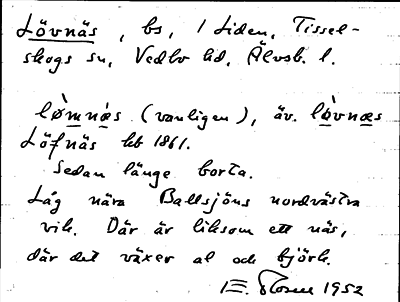 Lövnäs, bs, / Liden, Tissel-
skogs sn, Vedbo hd, Älvsb. l.
lø̀mnæs (vanligen), äv. lø̀vnæs
Löfnäs hb 1861.
Sedan länge borta.
Låg nära Ballsjöns nordvästra
vik. Där är liksom ett näs,
där det växer al och björk.
1952